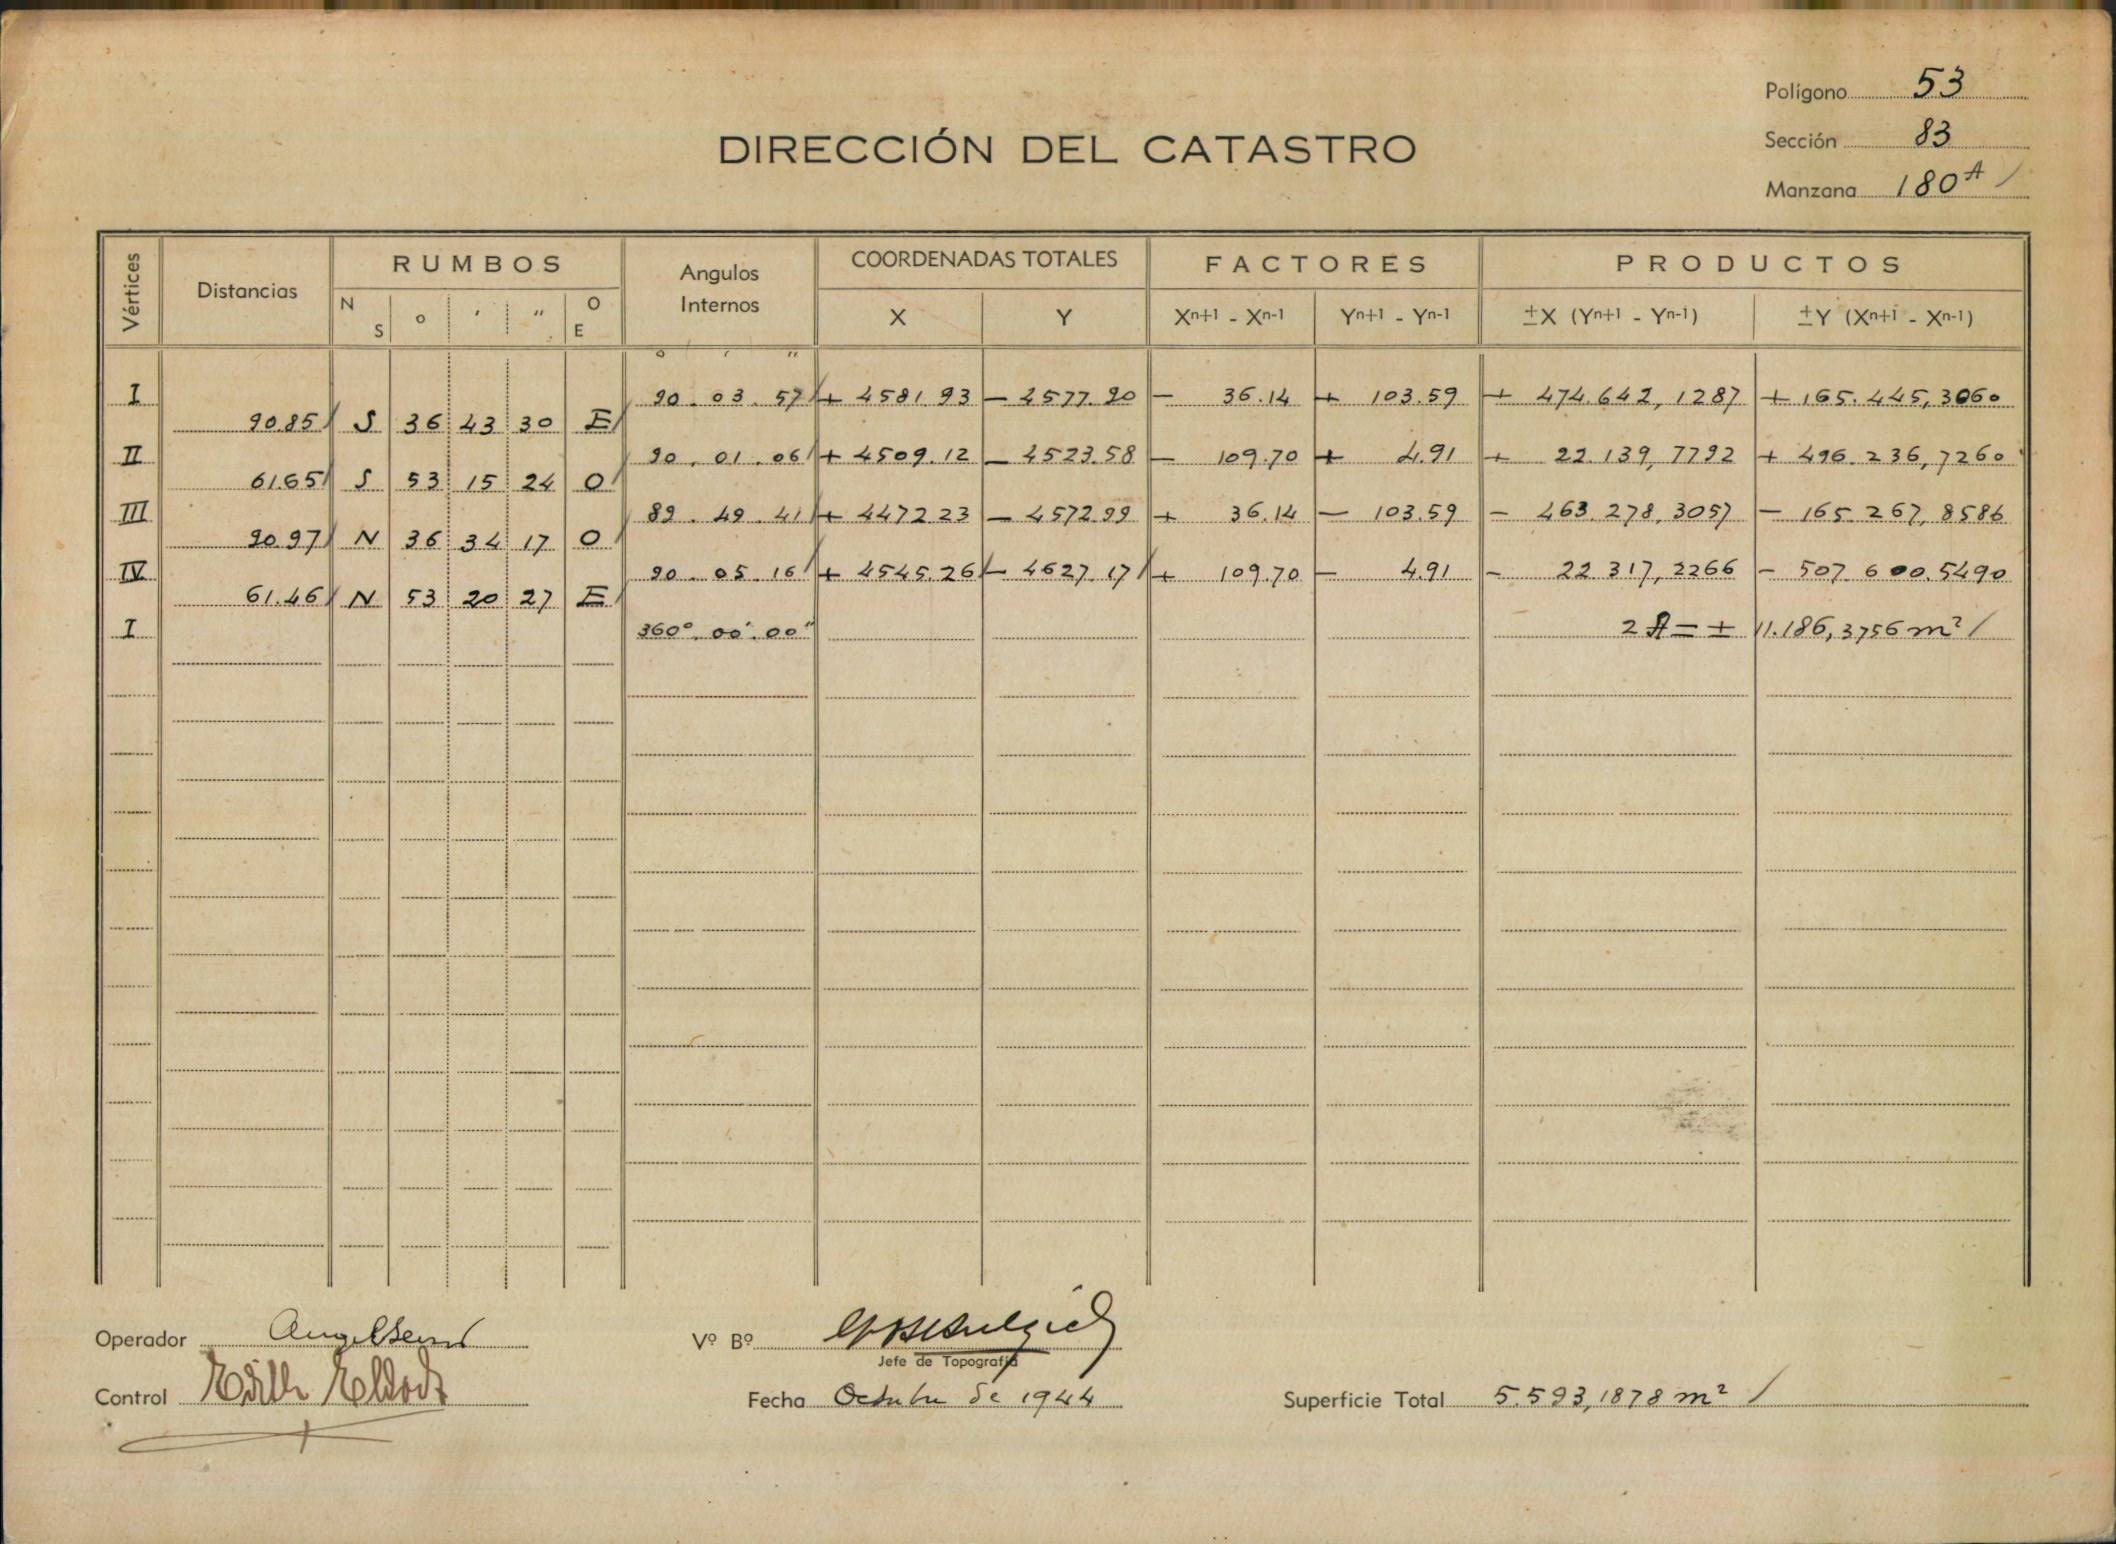 Polígono 53
DIRECCIÓN DEL CATASTRO
Sección 83
Manzana 180 A
Vértices Distancias RUMBOS Angulos Internos COORDENADAS TOTALES FACTORES PRODUCTOS
N S o ′ ″ O E X Y Xn+1 - Xn-1 Yn+1 - Yn-1 ±X (Yn+1 - Yn-1) ±Y (Xn+1 - Xn-1)
o ′ ″
I 90.03.57 + 4581.93 — 4577.90 — 36.14 + 103.59 + 474.642,1287 + 165.445,3060
90.85 S 36 43 30 E
II 90.01.06 + 4509.12 — 4523.58 — 109.70 + 4.91 + 22.139,7792 + 496.236,7260
61.65 S 53 15 24 O
III 89.49.41 + 4472.23 — 4572.99 + 36.14 — 103.59 - 463.278,3057 — 165.267,8586
90.97 N 36 34 17 O
IV 90.05.16 + 4545.26 — 4627.17 + 109.70 — 4.91 - 22.317,2266 — 507.600.5490
61.46 N 53 20 27 E
I 360°.00′.00″ 2A = ± 11.186,3756 m²
Operador
Vº Bº
Jefe de Topografía
Control
Fecha Octubre de 1944
Superficie Total 5.593,1878 m²